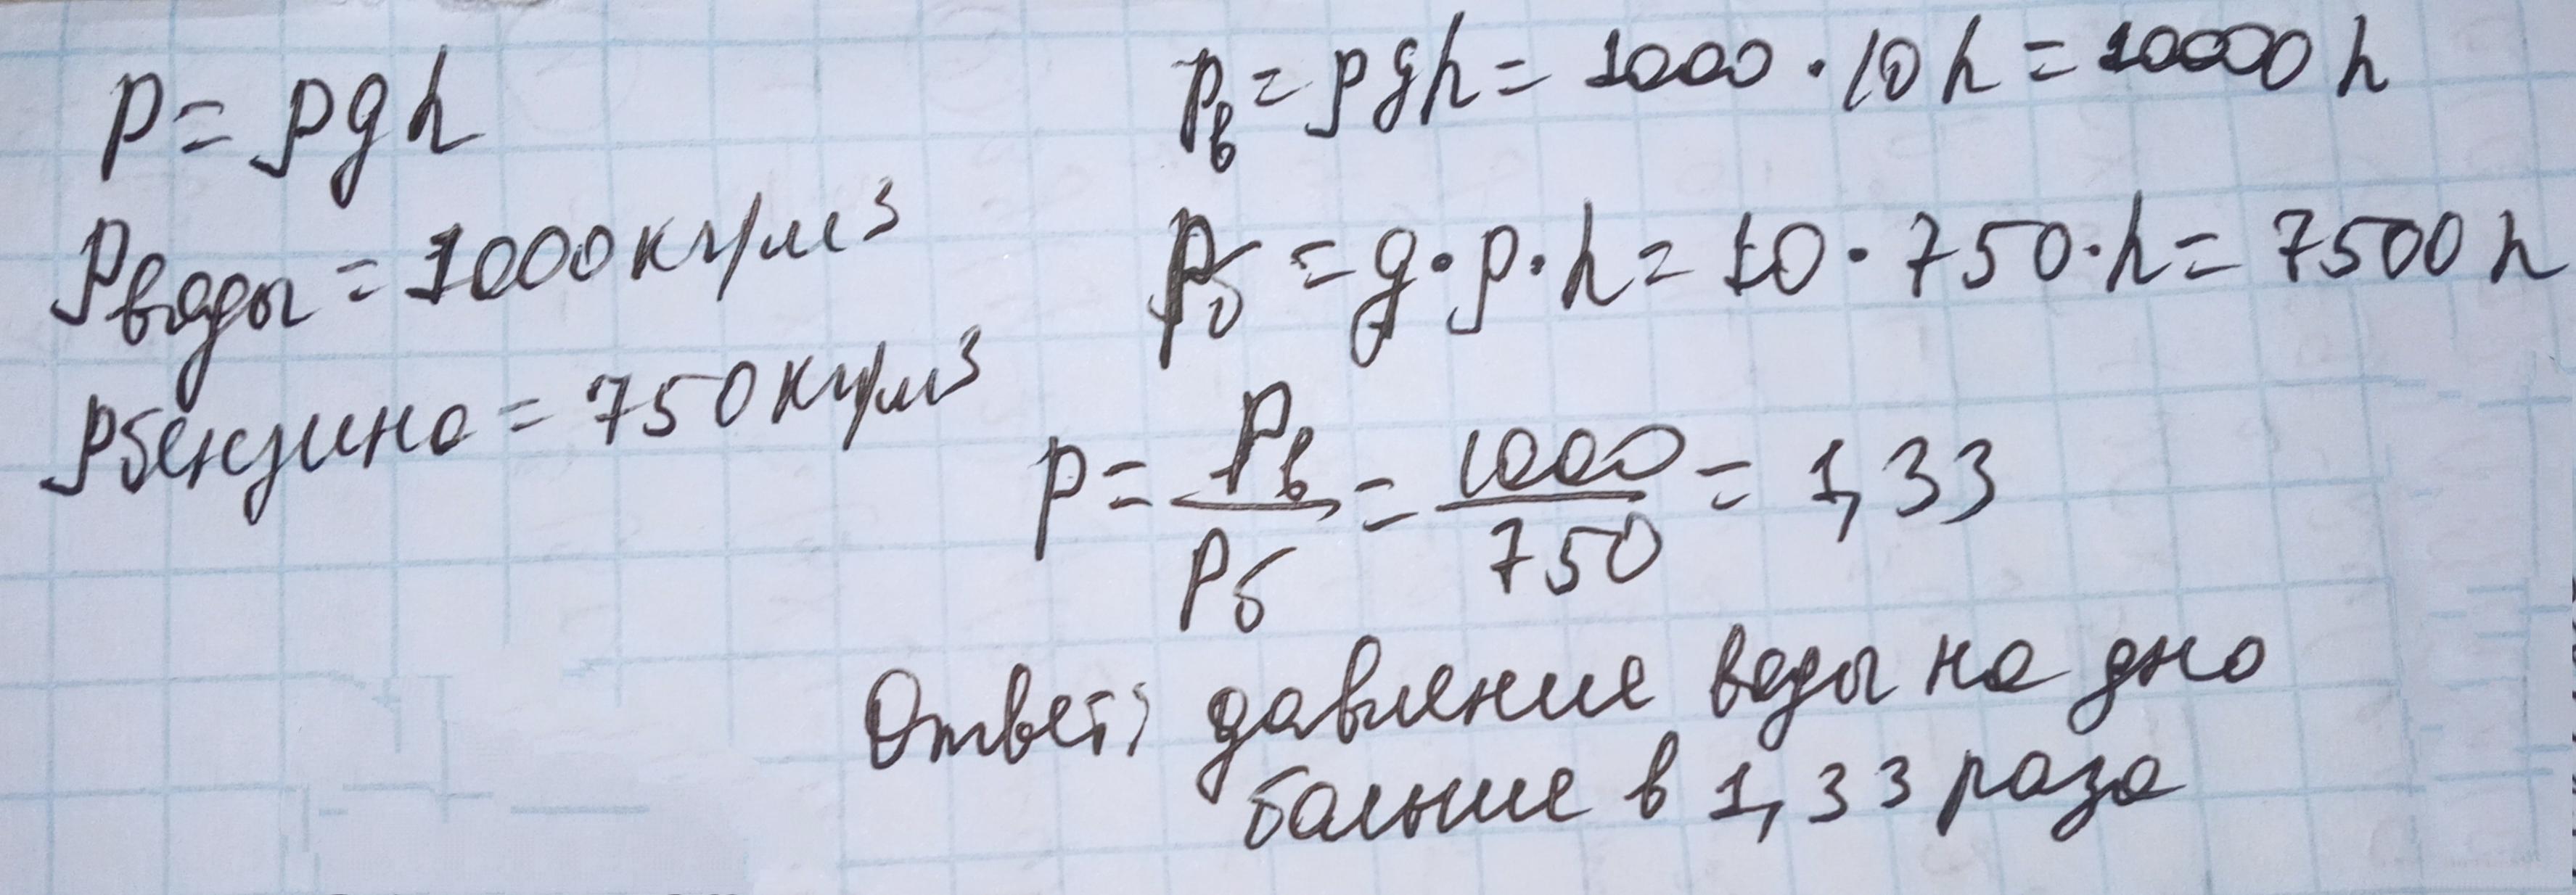 p = ρgh
ρводы = 1000 кг/м³
ρбензина = 750 кг/м³
pв = ρgh = 1000 · 10 h = 10000 h
pб = g · ρ · h = 10 · 750 · h = 7500 h
p = pв/pб = 1000/750 = 1,33
Ответ: давление воды на дно
больше в 1,33 раза